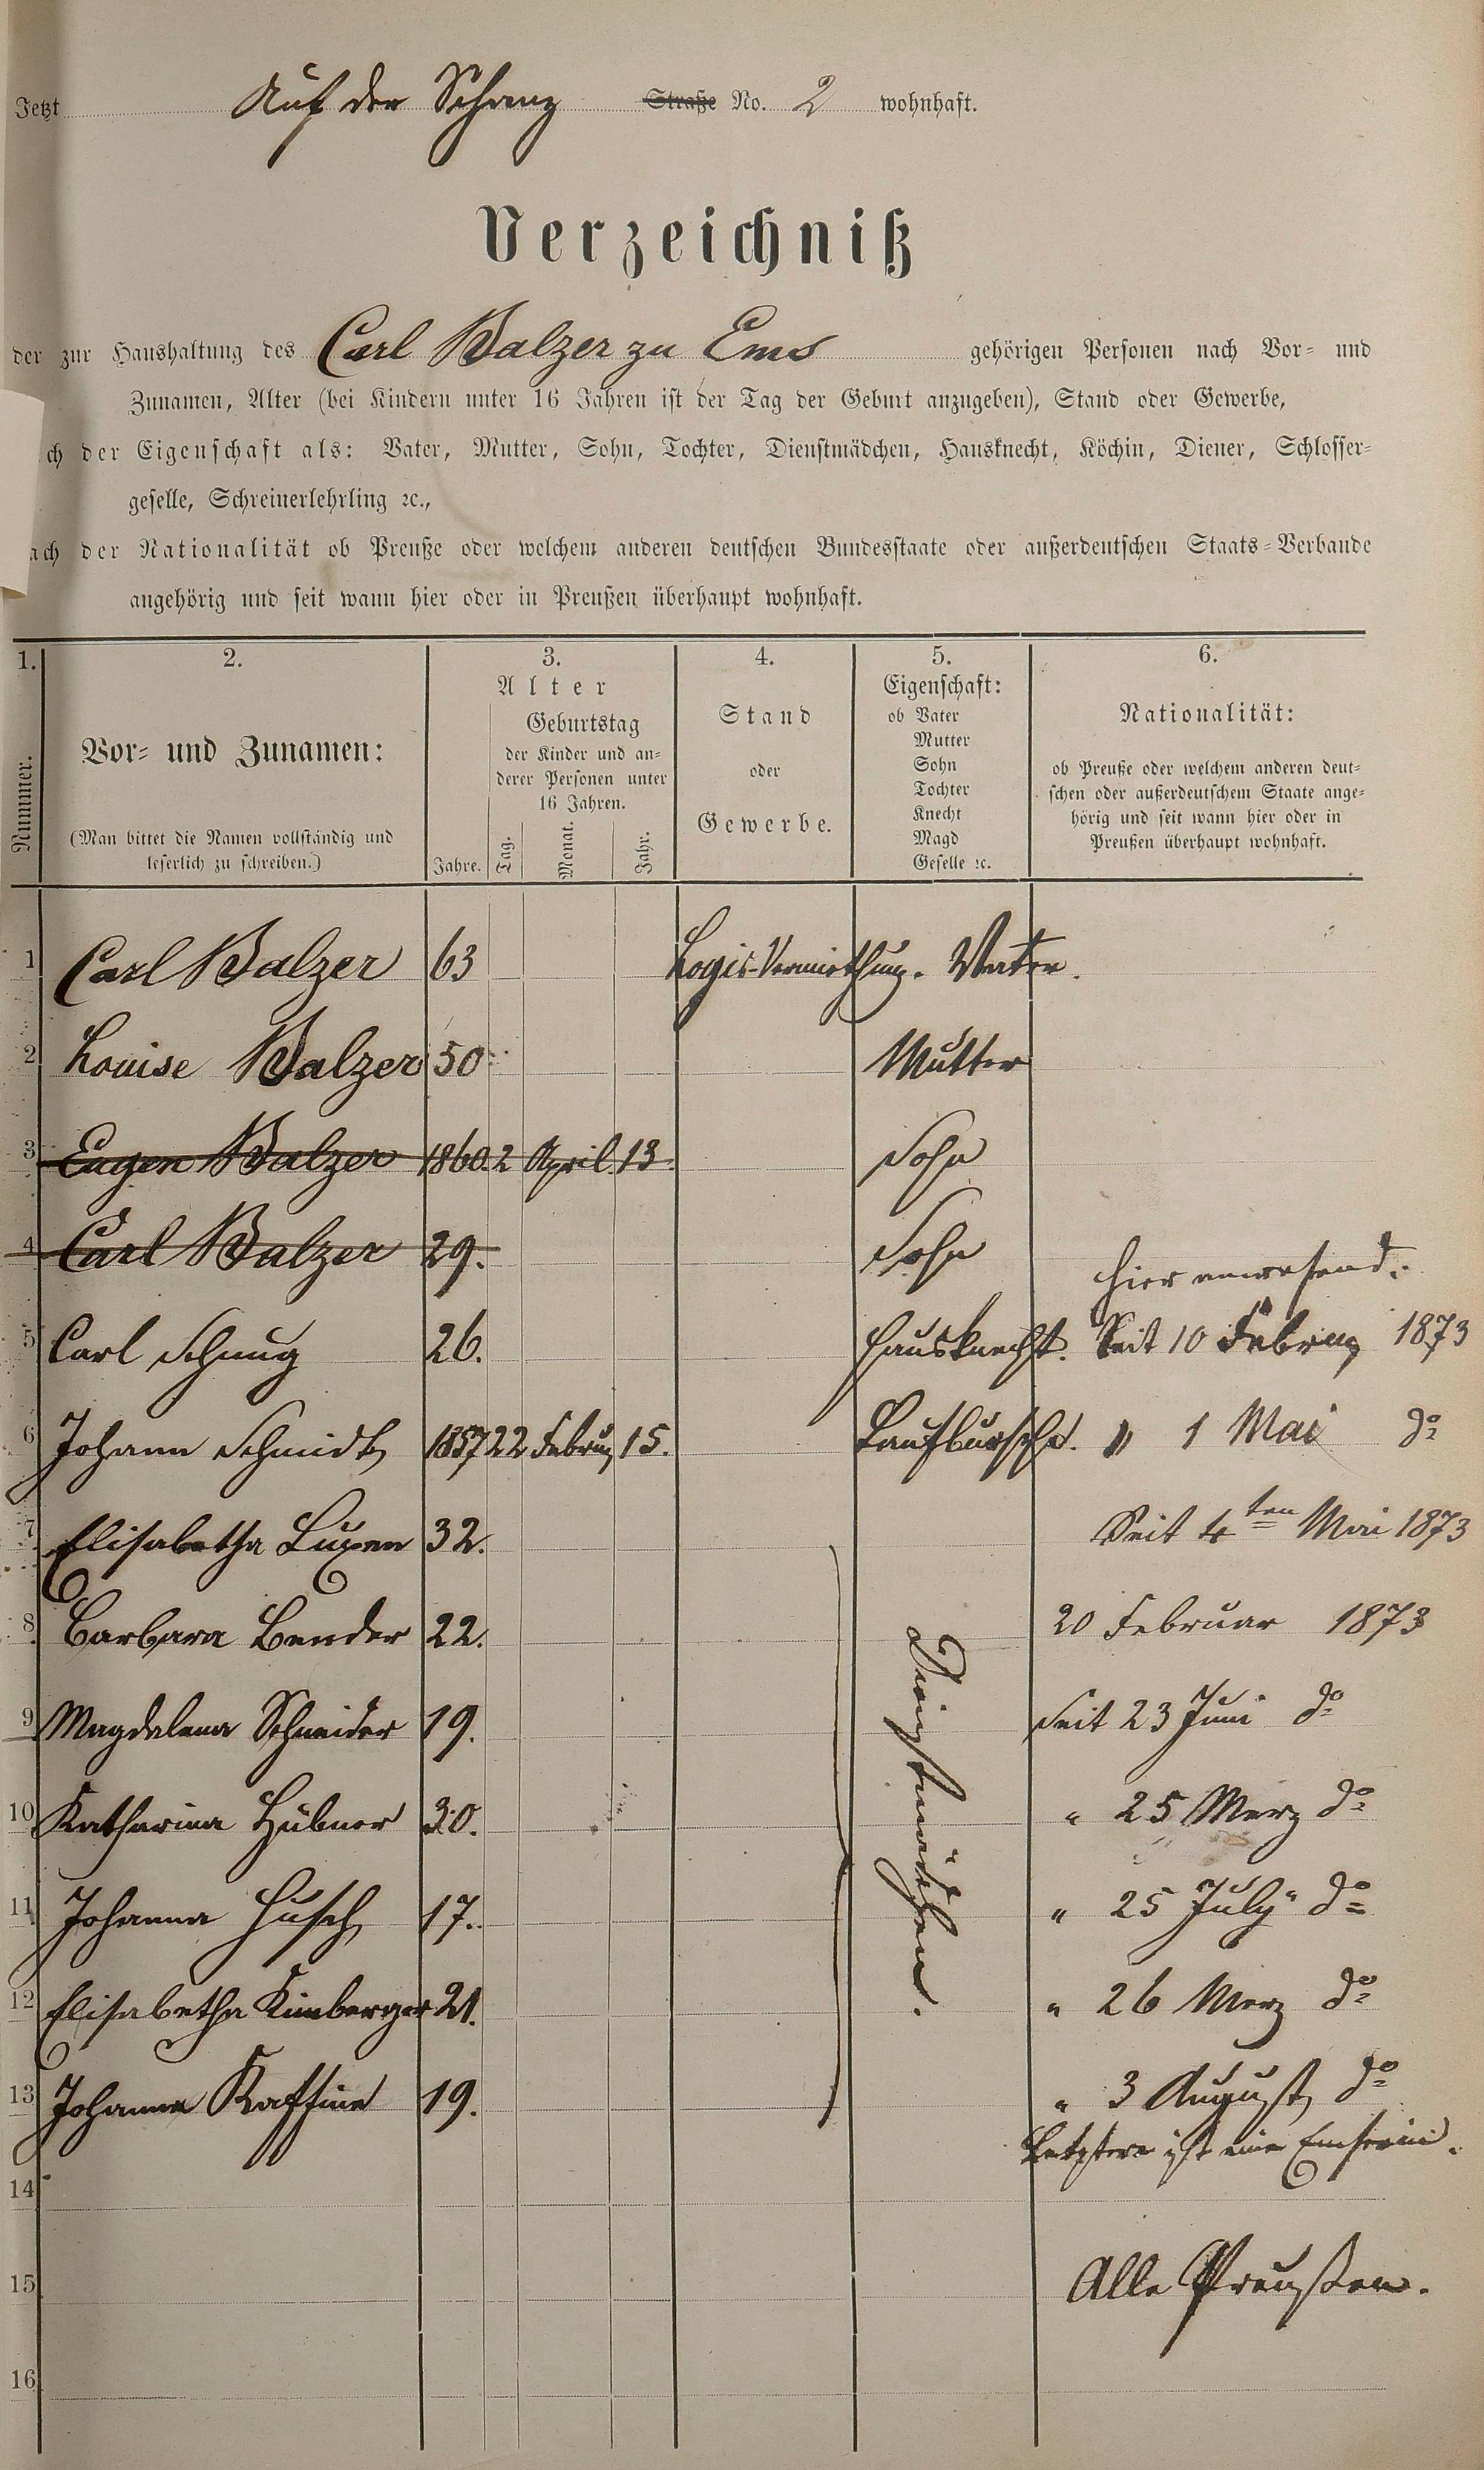 Jetzt Auf der Schanz Straße No. 2 wohnhaft.
Verzeichniß
der zur Haushaltung des Carl Balzer zu Ems gehörigen Personen nach Vor- und
Zunamen, Alter (bei Kindern unter 16 Jahren ist der Tag der Geburt anzugeben), Stand oder Gewerbe,
ch der Eigenschaft als: Vater, Mutter, Sohn, Tochter, Dienstmädchen, Hausknecht, Köchin, Diener, Schlosser-
geselle, Schreinerlehrling ꝛc.,
ach der Nationalität ob Preuße oder welchem anderen deutschen Bundesstaate oder außerdeutschen Staats-Verbande
angehörig und seit wann hier oder in Preußen überhaupt wohnhaft.
1. 2. 3. 4. 5. 6.
Nummer.
Vor- und Zunamen:
(Man bittet die Namen vollständig und
leserlich zu schreiben.)
Alter
Jahre.
Geburtstag
der Kinder und an-
derer Personen unter
16 Jahren.
Tag. Monat. Jahr.
Stand
oder
Gewerbe.
Eigenschaft:
ob Vater
Mutter
Sohn
Tochter
Knecht
Magd
Geselle ꝛc.
Nationalität:
ob Preuße oder welchem anderen deut-
schen oder außerdeutschem Staate ange-
hörig und seit wann hier oder in
Preußen überhaupt wohnhaft.
1 Carl Balzer 63 Logis-Vermiethung. Vater.
2 Louise Balzer 50 Mutter
3 Eugen Balzer 1860. 2 April. 13. Sohn
4 Carl Balzer 29. Sohn
hier anwesend.
5 Carl Schnug 26. Hausknecht. Seit 10 Februar 1873
6 Johann Schmidt 1857 22 Februar 15. Laufbursche. " 1 Mai do
7 Elisabetha Luxen 32. Seit 4ten Mai 1873
8 Barbara Bender 22. 20 Februar 1873
9 Magdalena Schneider 19. Seit 23 Juni do
10 Katharina Hübner 30. " 25 Merz do
11 Johanna Husch 17. " 25 July do
12 Elisabetha Kimberger 21. " 26 Merz do
13 Johanna Kaffine 19. " 3 August do
Dienstmädchen.
Letztere ist eine Emserin.
14
15 Alle Preußen.
16